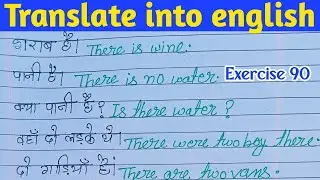 Translate into english
शराब है। There is wine.
पानी है। There is no water. Exercise 90
क्या पानी है? Is there water?
वहाँ दो लड़के थे। There were two boy there.
दो गाड़ियाँ हैं। There are two vans.